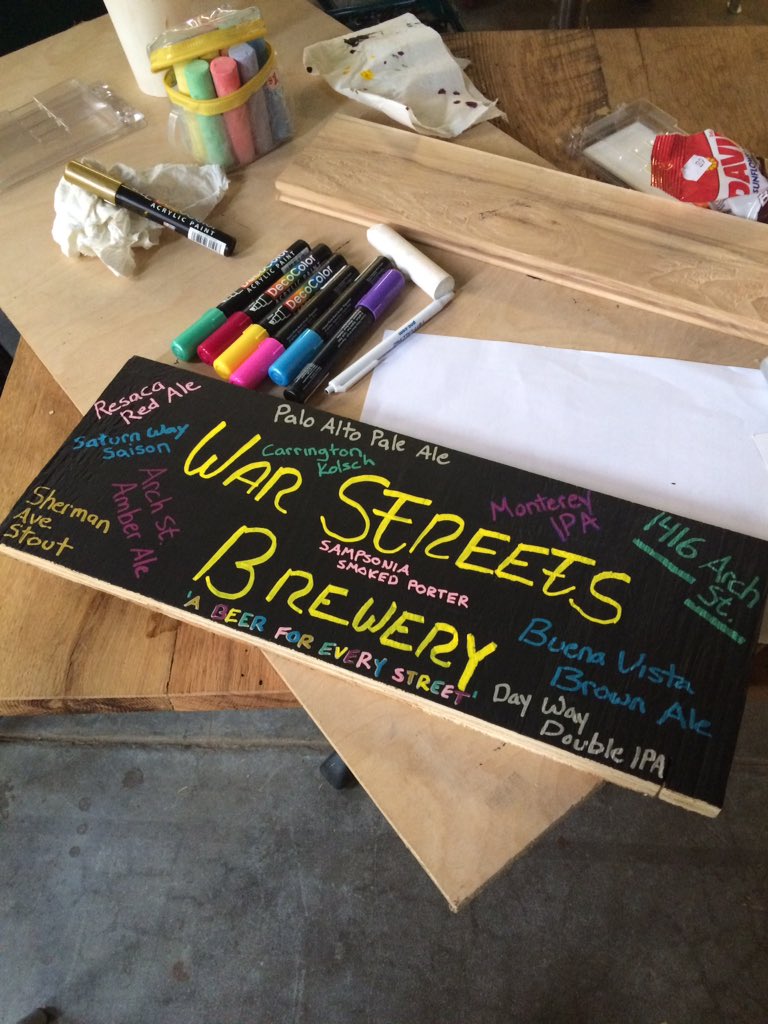 ACRYLIC PAINT
ACRYLIC PAINT
DecoColor
DecoColor
DAVI
SUNFLO
Resaca
Red Ale
Palo Alto Pale Ale
Saturn Way
Saison
Carrington
Kolsch
WAR STREETS
BREWERY
Arch St.
Amber Ale
Sherman
Ave
Stout
Monterey
IPA
1416 Arch
St.
SAMPSONIA
SMOKED PORTER
'A BEER FOR EVERY STREET'
Buena Vista
Brown Ale
Day Way
Double IPA